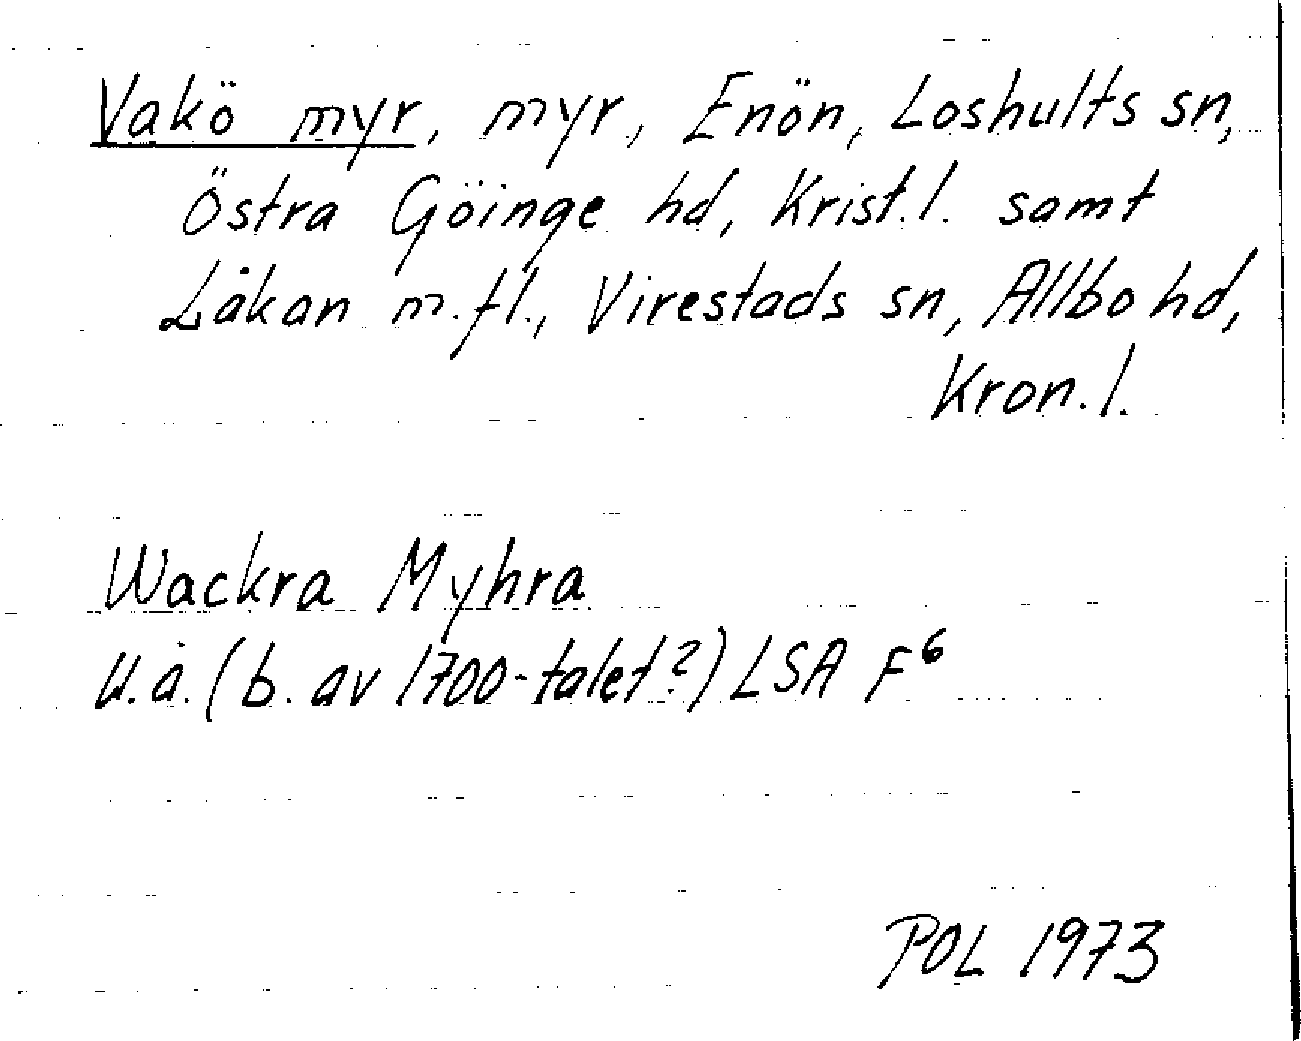 Vakö myr, myr, Enön, Loshults sn,
Östra Göinge hd, Krist.l. samt
Låkan m.fl., Virestads sn, Allbo hd,
Kron.l.
Wackra Myhra
U.å. (b. av 1700-talet?) LSA F⁶
POL 1973